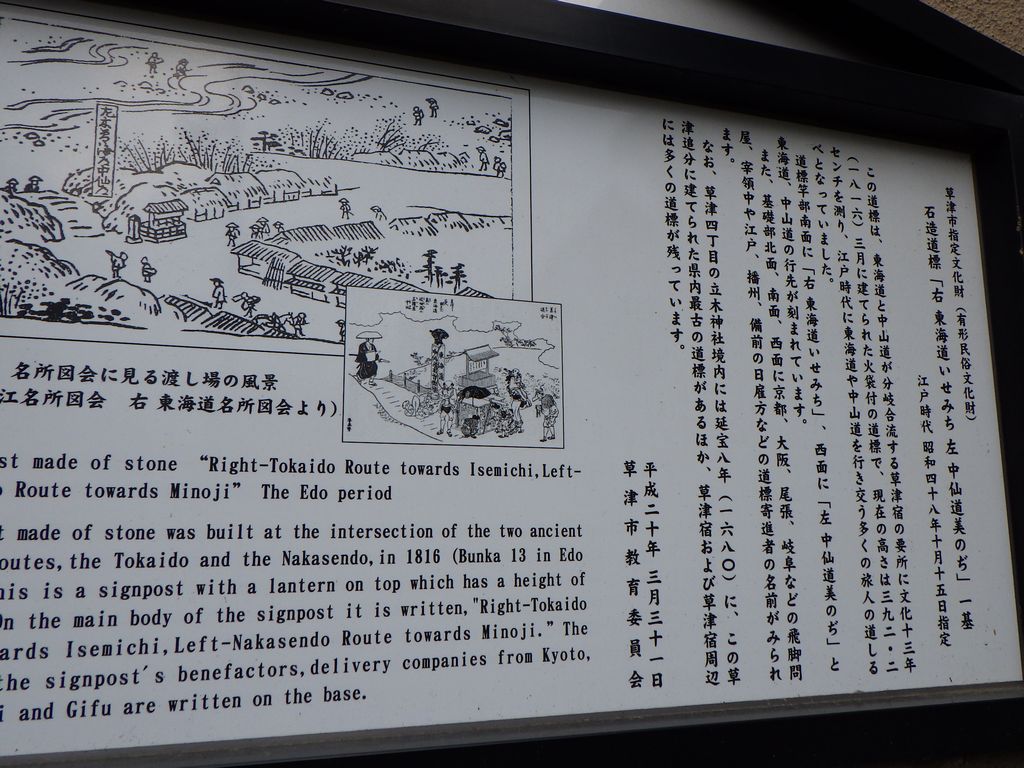 草津市指定文化財（有形民俗文化財）
石造道標「右 東海道いせみち 左 中仙道美のぢ」一基
江戸時代 昭和四十八年十月十五日指定
この道標は、東海道と中山道が分岐合流する草津宿の要所に文化十三年
（一八一六）三月に建てられた火袋付の道標で、現在の高さは三九二・二
センチを測り、江戸時代に東海道や中山道を行き交う多くの旅人の道しる
べとなっていました。
道標竿部南面に「右 東海道いせみち」、西面に「左 中仙道美のぢ」と
東海道、中山道の行先が刻まれています。
また、基礎部北面、南面、西面に京都、大阪、尾張、岐阜などの飛脚問
屋、宰領中や江戸、播州、備前の日雇方などの道標寄進者の名前がみられ
ます。
なお、草津四丁目の立木神社境内には延宝八年（一六八〇）に、この草
津追分に建てられた県内最古の道標があるほか、草津宿および草津宿周辺
には多くの道標が残っています。
平成二十年 三月三十一日
草津市教育委員会
名所図会に見る渡し場の風景
江名所図会 右 東海道名所図会より）
st made of stone “Right-Tokaido Route towards Isemichi,Left-
Route towards Minoji” The Edo period
t made of stone was built at the intersection of the two ancient
outes, the Tokaido and the Nakasendo, in 1816 (Bunka 13 in Edo
his is a signpost with a lantern on top which has a height of
On the main body of the signpost it is written,"Right-Tokaido
ards Isemichi,Left-Nakasendo Route towards Minoji.” The
the signpost's benefactors,delivery companies from Kyoto,
i and Gifu are written on the base.